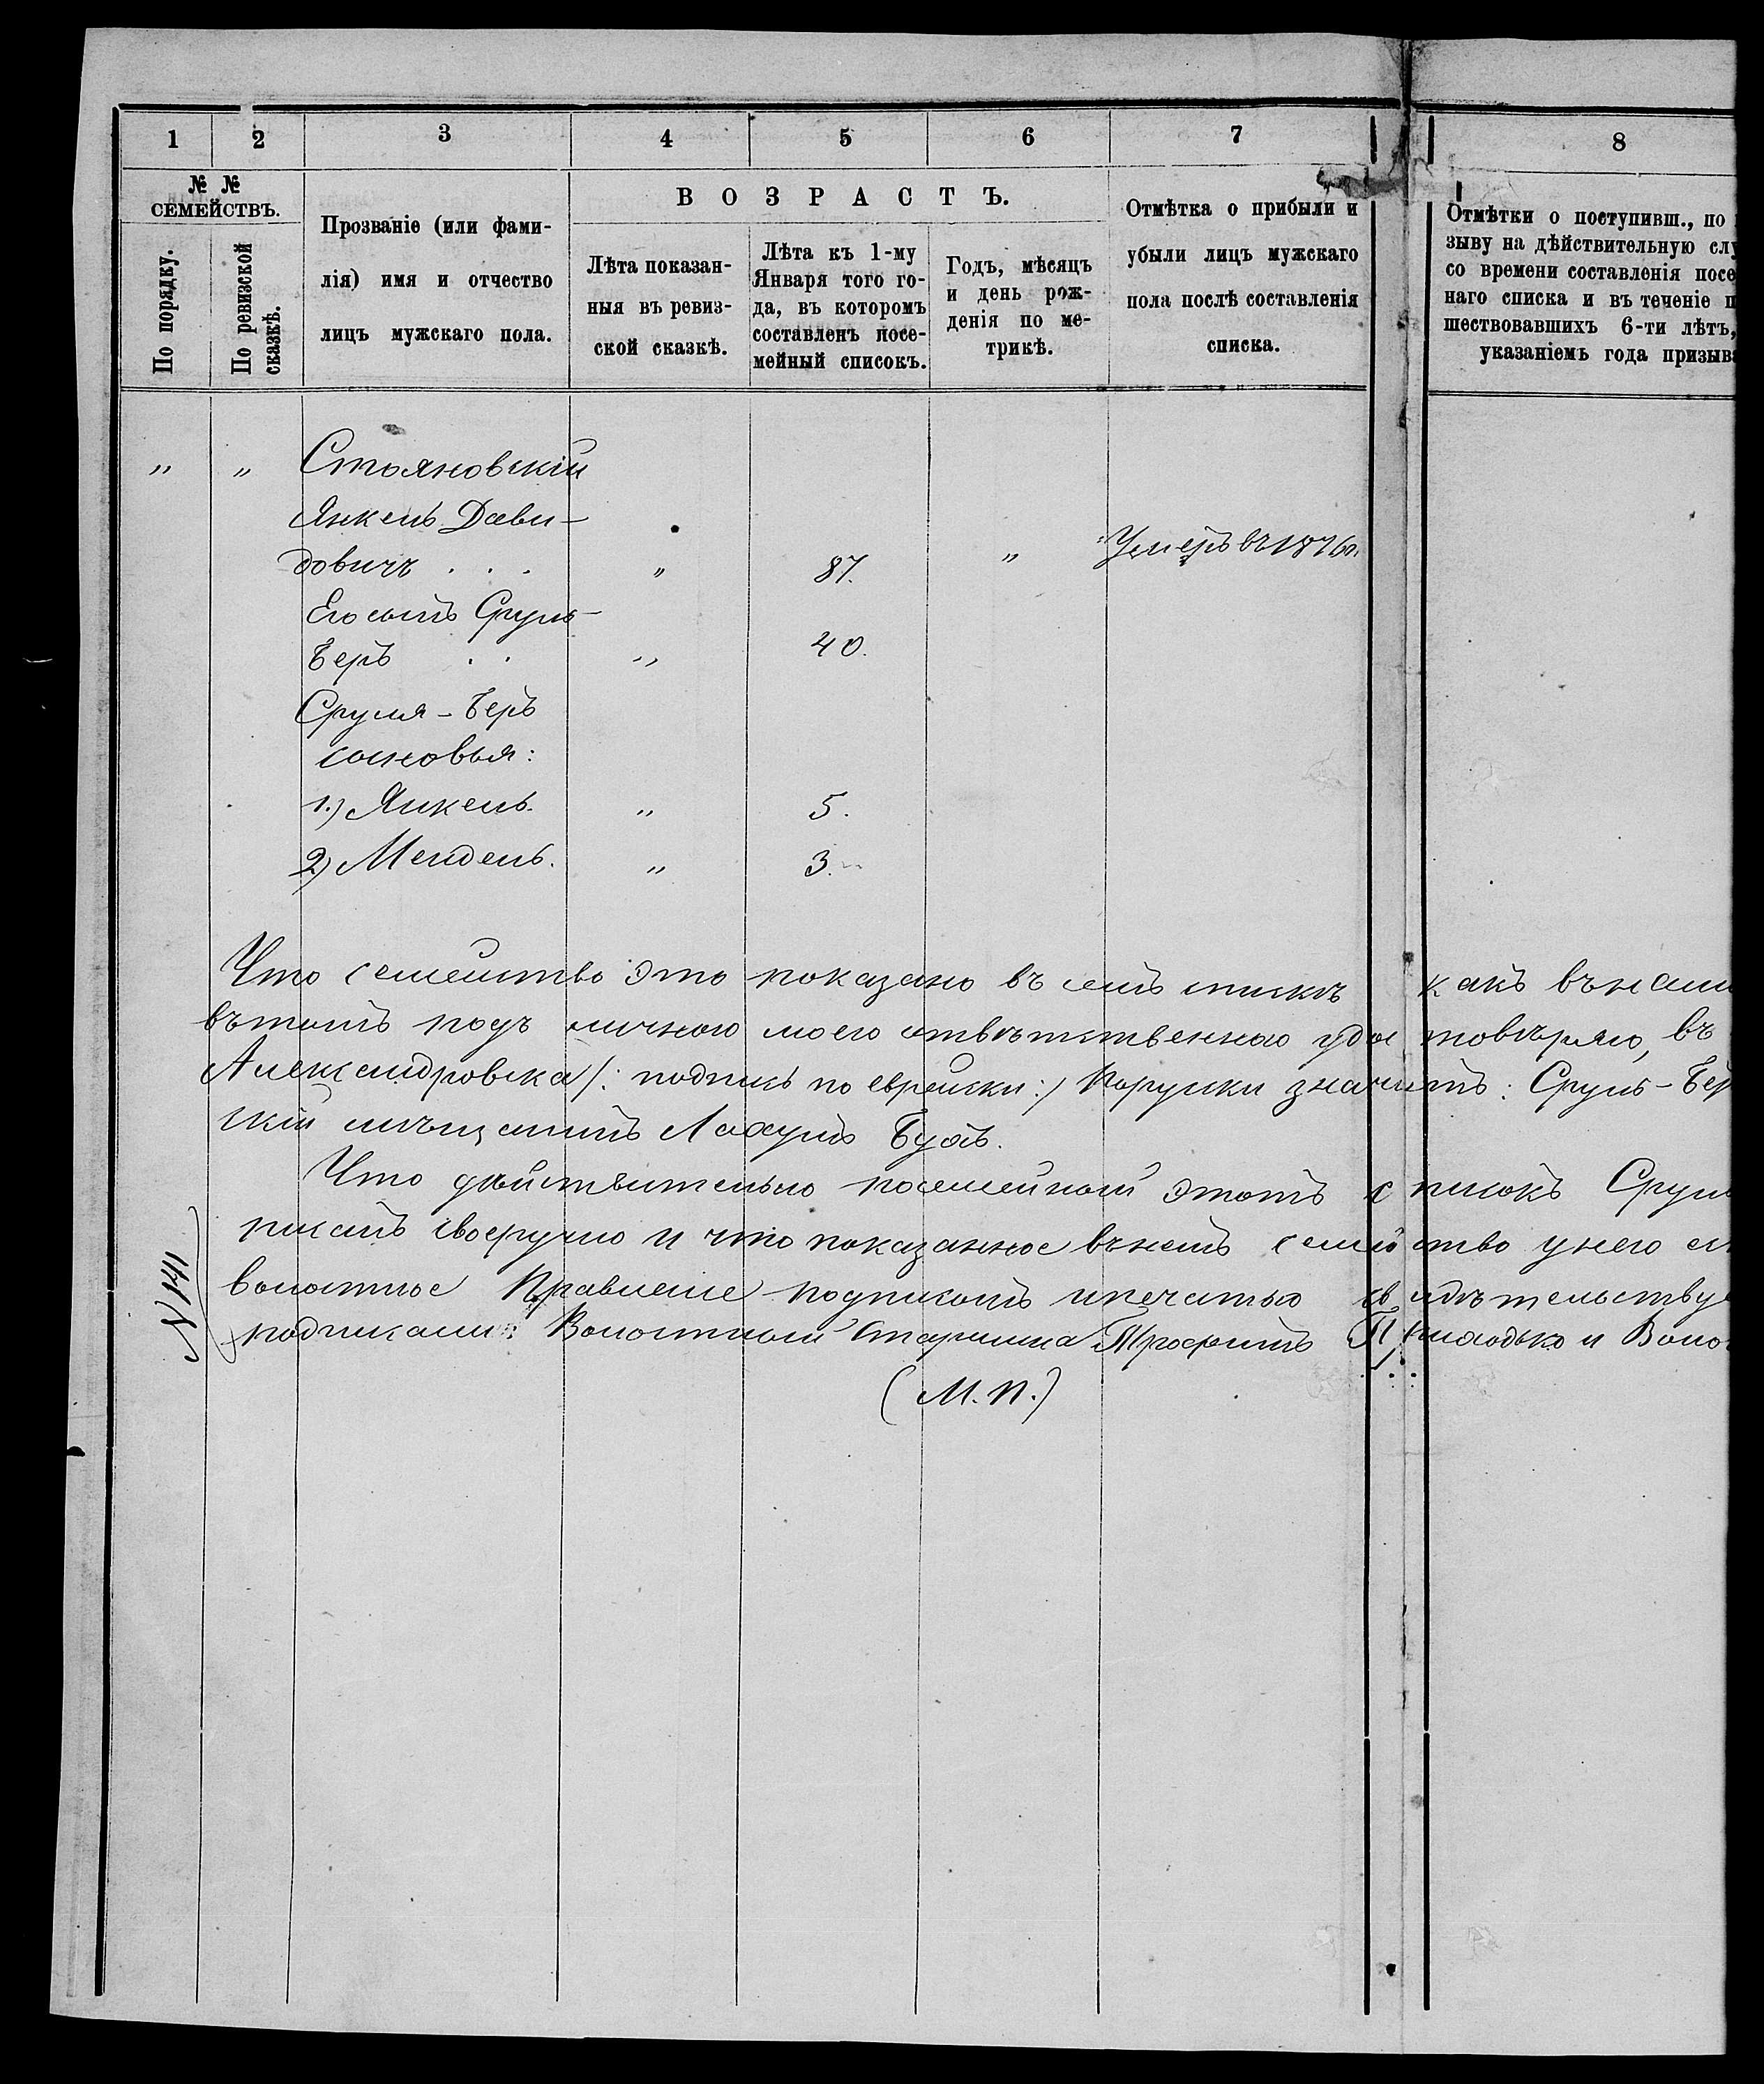 1 2 3 4 5 6 7 8
№ №
СЕМЕЙСТВЪ.
По порядку.
По ревизской
сказкѣ.
Прозваніе (или фами-
лія) имя и отчество
лицъ мужскаго пола.
ВОЗРАСТЪ.
Лѣта показан-
ныя въ ревиз-
ской сказкѣ.
Лѣта къ 1-му
Января того го-
да, въ которомъ
составленъ посе-
мейный списокъ.
Годъ, мѣсяцъ
и день рож-
денія по ме-
трикѣ.
Отмѣтка о прибыли и
убыли лицъ мужскаго
пола послѣ составленія
списка.
Отмѣтки о поступивш., по
зыву на дѣйствительную слу
со времени составленія посе
наго списка и въ теченіе п
шествовавшихъ 6-ти лѣтъ,
указаніемъ года призыв
" " Стояновскій
Янкель Дави-
довичъ . . . " 87. " Умеръ въ 1876г.
Его сынъ Сруль-
Беръ . . " 40.
Сруля-Беръ
сыновья:
1.) Янкель. " 5.
2) Мендель. " 3.
Что семейство это показано въ семъ спискѣ какъ въ нали
въ томъ подъ личною моею отвѣтственною удостовѣряю, въ
Александровка /: подпись по еврейски :/ Поруски значитъ: Сруль-Бер
скій мѣщанинъ
Что дѣйствительно посемейный этотъ списокъ Сруль
писалъ своеручно и что показанное въ немъ семейство у него ес
волостное Правленіе подписомъ и печатью свидѣтельству
подписали: Волостный Старшина Трофимъ и Воло
(М.П.)
N 141